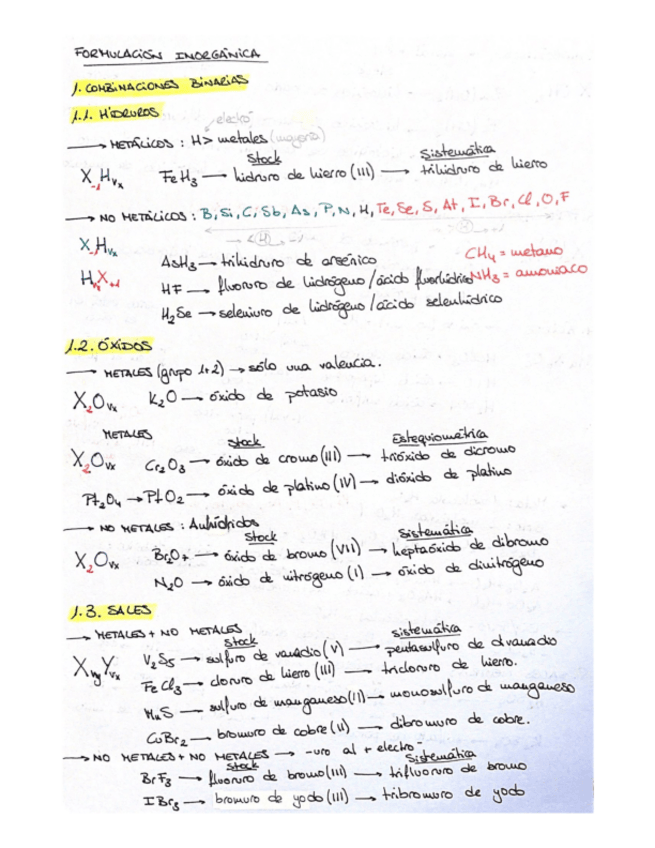 FORMULACIÓN INORGÁNICA
1. COMBINACIONES BINARIAS
1.1. HIDRUROS
electro
→ METÁLICOS : H > metales (mayoría)
Stock Sistemática
X H Vx FeH3 → hidruro de hierro (III) → trihidruro de hierro
→ NO METÁLICOS : B, Si, C, Sb, As, P, N, H, Te, Se, S, At, I, Br, Cl, O, F
X H Vx
AsH3 → trihidruro de arsénico CH4 = metano
H X HF → fluoruro de hidrógeno / ácido fluorhídrico NH3 = amoniaco
H2Se → seleniuro de hidrógeno / ácido selenhídrico
1.2. ÓXIDOS
→ METALES (grupo 1+2) → sólo una valencia.
X2OVx K2O → óxido de potasio
METALES
Stock Estequiométrica
X2OVx Cr2O3 → óxido de cromo (III) → trióxido de dicromo
Pt2O4 → PtO2 → óxido de platino (IV) → dióxido de platino
→ NO METALES : Anhídridos
Stock Sistemática
X2OVx Br2O7 → óxido de bromo (VII) → heptaóxido de dibromo
N2O → óxido de nitrógeno (I) → óxido de dinitrógeno
1.3. SALES
→ METALES + NO METALES
Stock Sistemática
XVyYVx V2S5 → sulfuro de vanadio (V) → pentasulfuro de divanadio
FeCl3 → cloruro de hierro (III) → tricloruro de hierro.
MnS → sulfuro de manganeso (II) → monosulfuro de manganeso
CuBr2 → bromuro de cobre (II) → dibromuro de cobre.
→ NO METALES + NO METALES → -uro al + electro-
Stock Sistemática
BrF3 → fluoruro de bromo (III) → trifluoruro de bromo
IBr3 → bromuro de yodo (III) → tribromuro de yodo